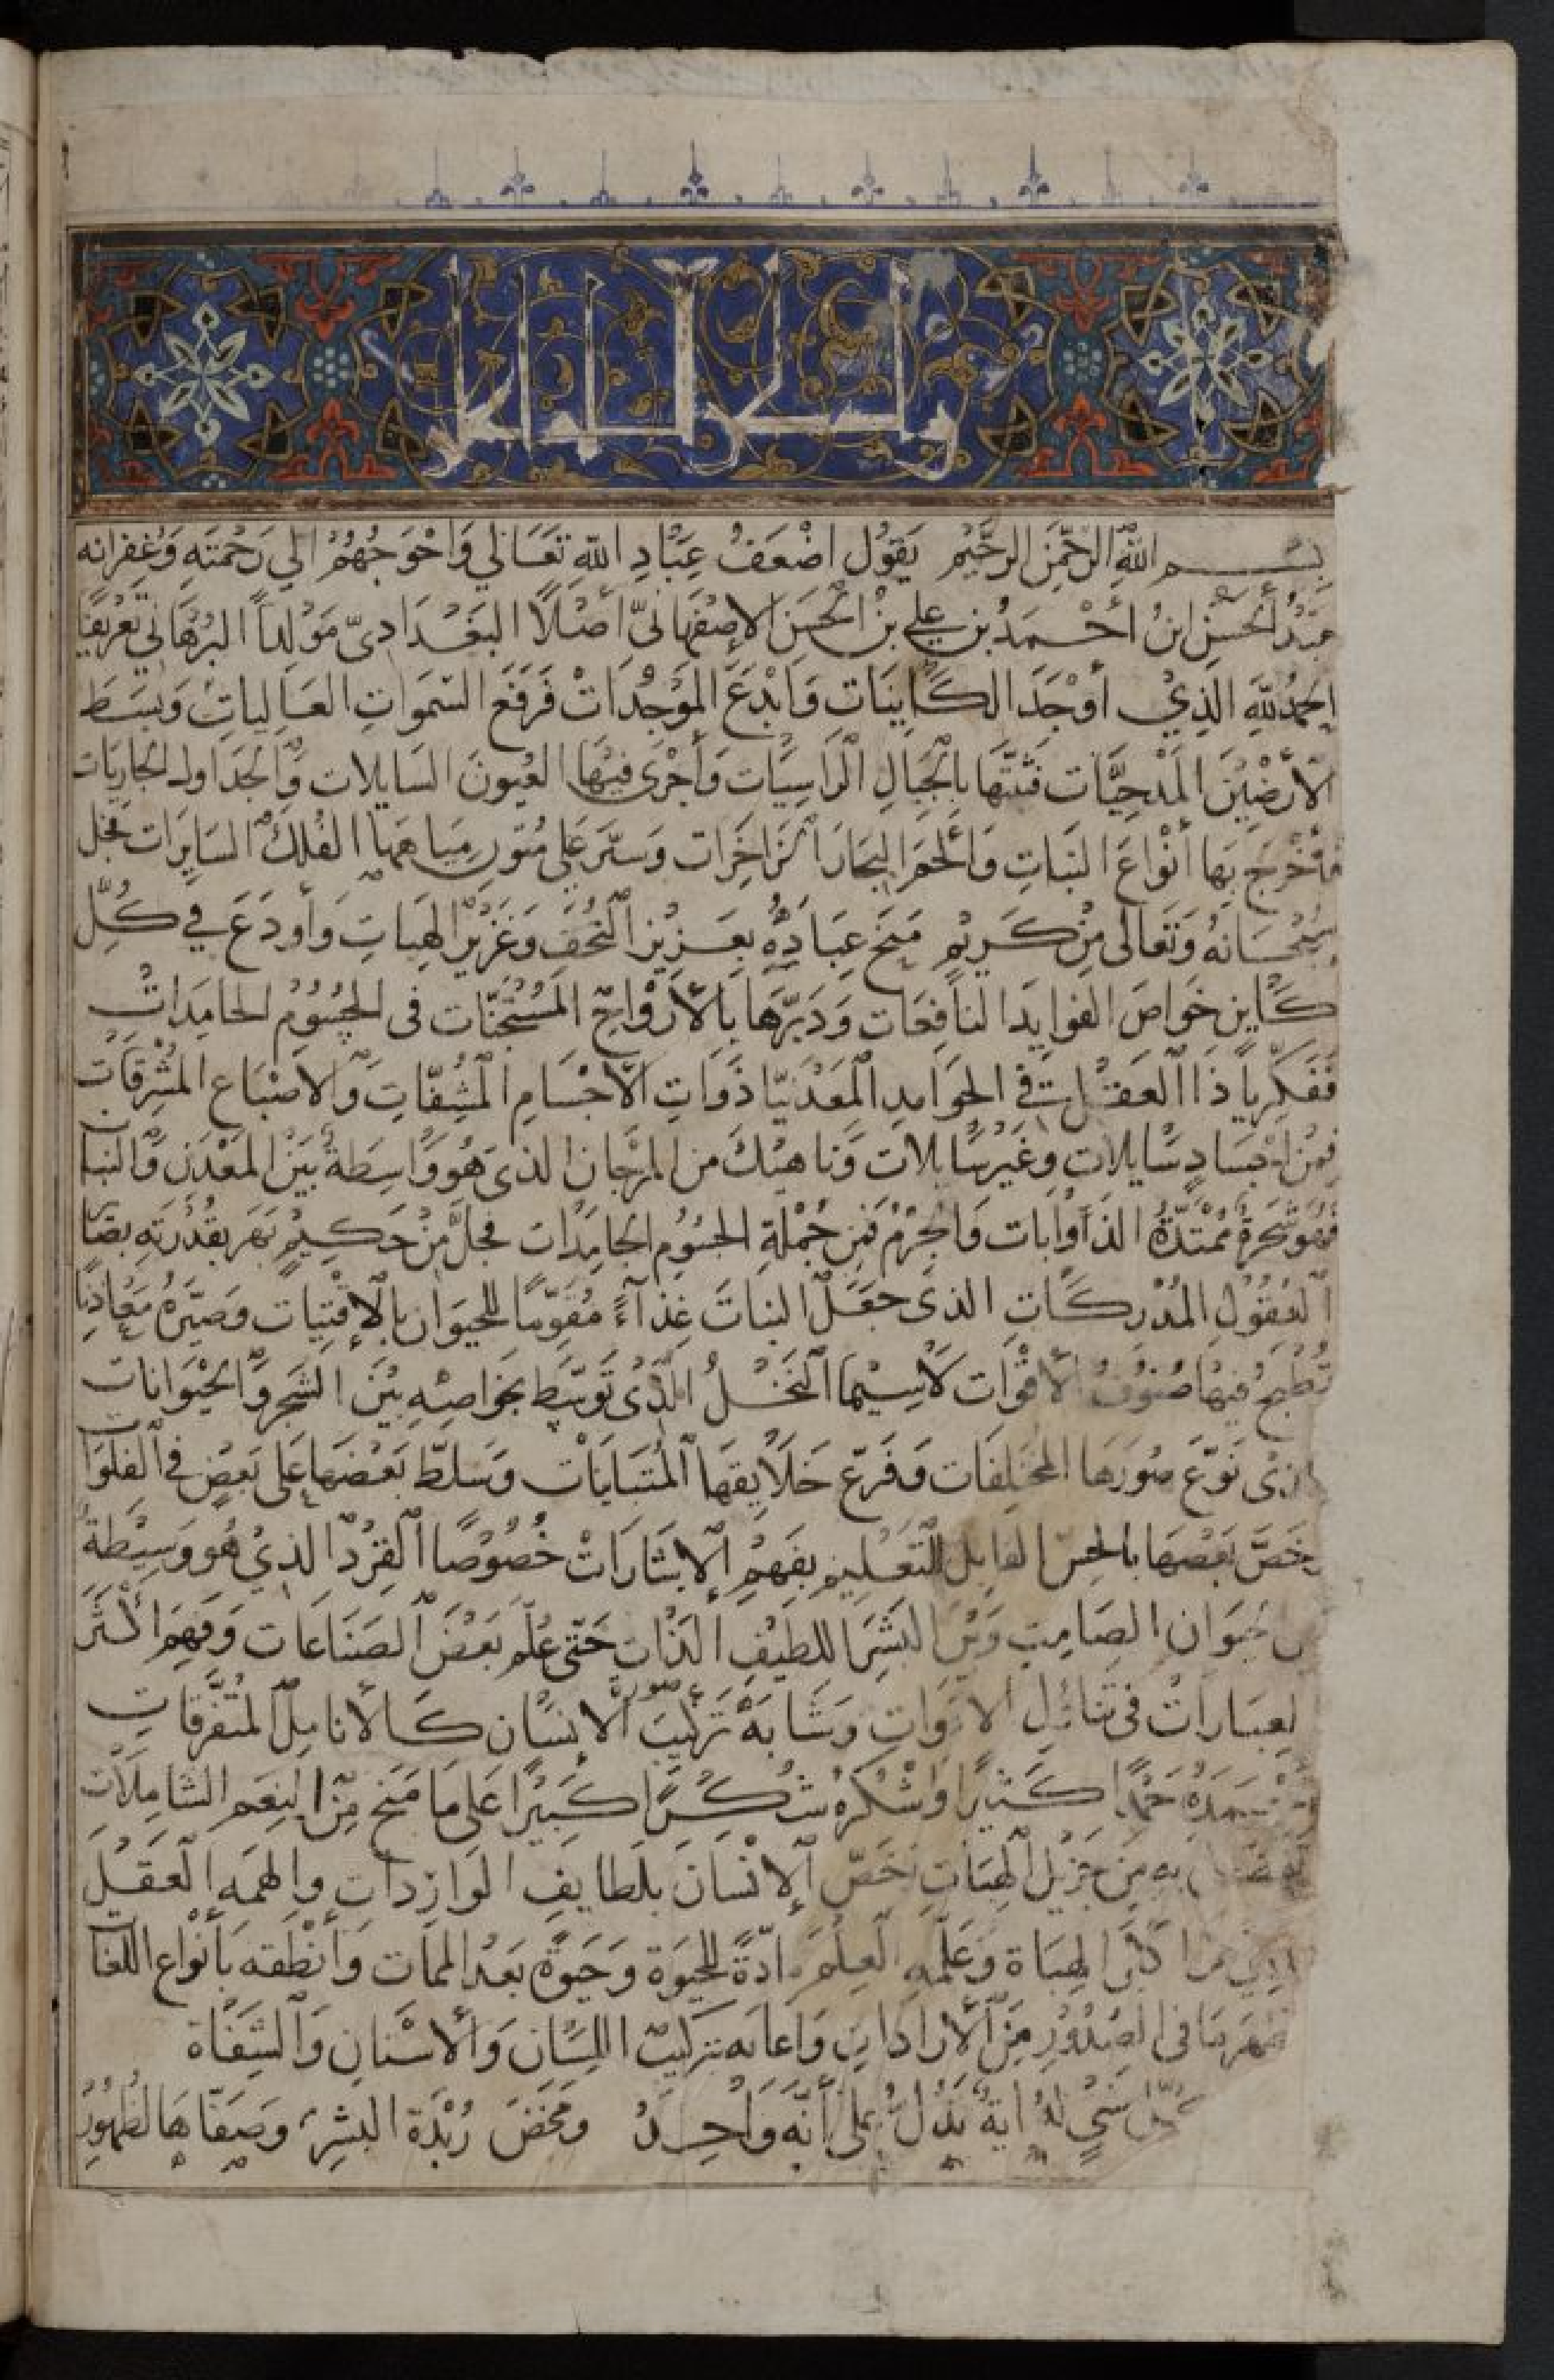 بسم الله الرحمن الرحيم يقول اضعف عباد الله تعالي واحوجهم الي رحمته وغفرانه
عبد الحسن ابن أحمد بن علي بن الحسن الاصفهاني أصلا البغدادي مولدا البرهاني تعريفا
الحمد لله الذي أوجد الكاينات وابدع الموجدات فرفع السموات العاليات وبسط
الأرضين المدحيات فثبتها بالجبال الراسيات وأجرى فيها العيون السايلات والجداول الجاريات
فأخرج بها أنواع النبات والحم البحار الزاخرات وستر علي متون مياهها الفلك السايرات فجل
سبحانه وتعالى من كريم منح عباده بعزيز التحف وغزير الهبات وأودع في كل
كاين خواص الفوايد النافعات ودبرها بالأرواح المستجنات فى الجسوم الجامدات
ففكر يا ذا العقل في الجوامد المعدنيا ذوات الاجسام المشفات والاصباع المشرقات
فمن اجساد سايلات وغير سايلات وناهيك من المرجان الذى هو واسطة بين المعدن والنبا
فهو شجرة ممتدة الذاوابات والجرم فمن جملة الجسوم الجامدات فجل من حكيم بهر بقدرته بصا
العقول المدركات الذى جعل النبات غذاء مقوما للحيوان بالاقتيات وصيره معادنا
تطبخ فيها صنوف الأقوات لاسيما النخل الذى توسط بخواصه بين الشجر والحيوانات
الذى نوع صورها المختلفات وفرع خلايقها المتباينات وسلط بعضها على بعض في الفلوا
وخص بعضها بالحس القابل للتعليم بفهم الإشارات خصوصا القرد الذي هو وسيطة
بين الحيوان الصامت وبين البشر اللطيف الذات حتى علم بعض الصناعات وفهم أكثر
العبارات في تناول الادوات وشابه تركيب صورة الانسان كالأنامل المتفرقات
نحمده حمدا كثيرا واشكره شكرا كبيرا على ما منح من النعم الشاملات
به من جزيل الهبات خص الإنسان بلطايف الواردات والهمه العقل
الذي هو اكبر الهباة وعلمه العلم مادة للحيوة وحيوة بعد الممات وأنطقه بأنواع اللغا
فى الصدور من الأرادات واعانه بتركيب اللسان والأسنان والشفاة
كل شي له اية تدل على أنه واحد ومخض زبدة البشر وصفاها لظهور